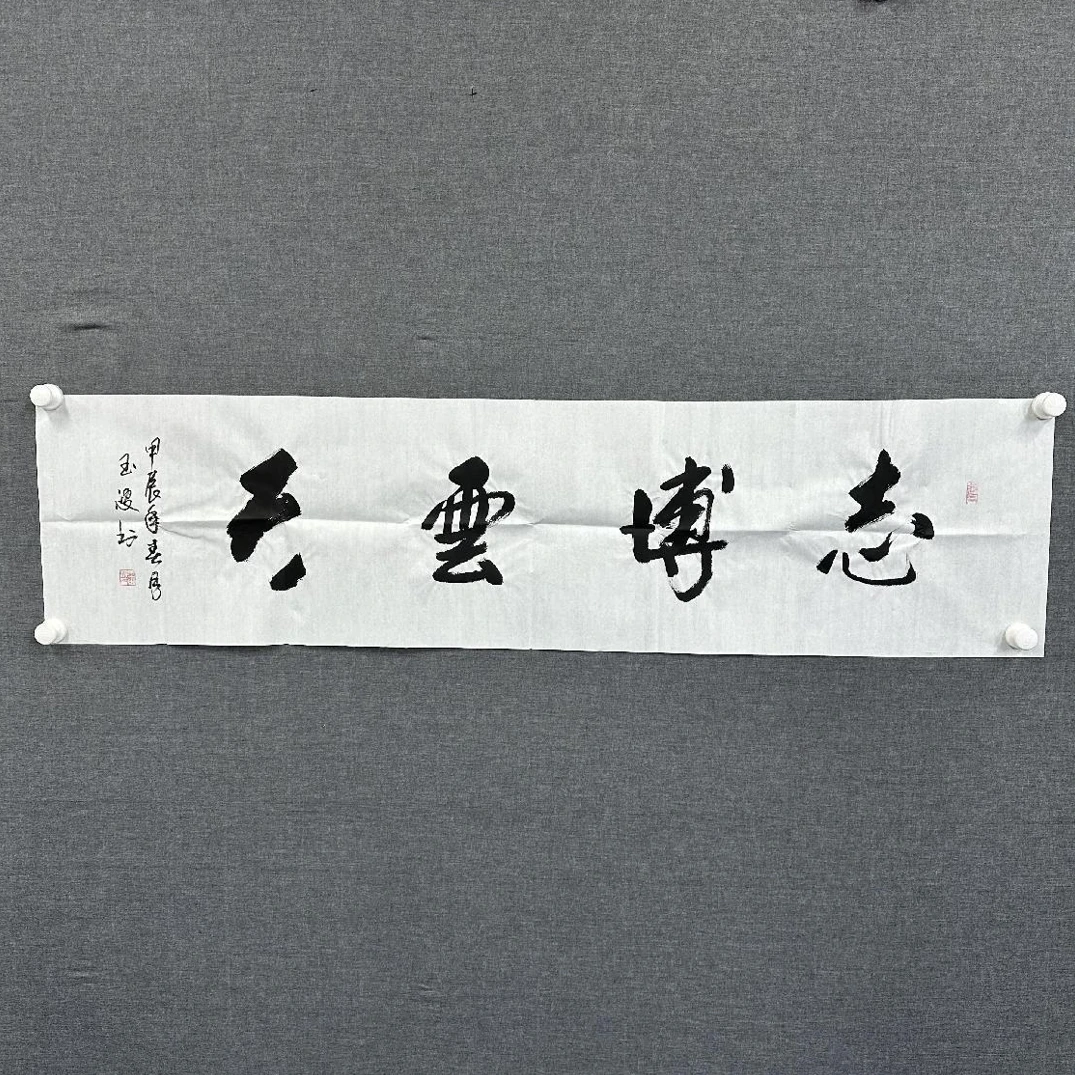 志博雲天
甲辰年春月
玉